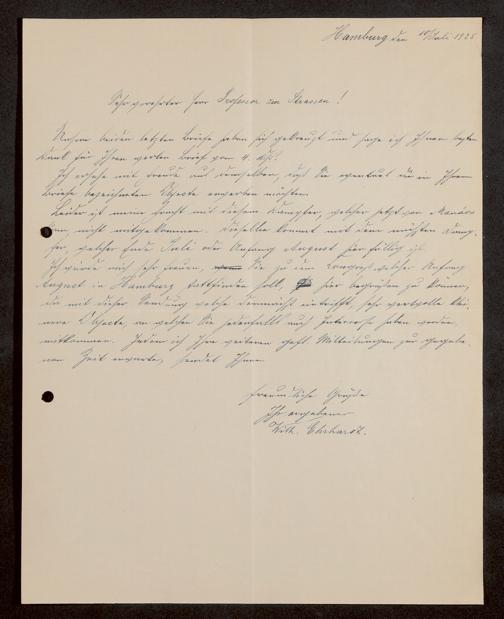 Hamburg den 10/Juli 1925
Sehr verehrter Herr Professor zur Strassen!
Unsere beiden letzten Briefe haben sich gekreuzt und sage ich Ihnen besten
Dank für Ihren werten Brief vom 4. ds.
Ich ersehe mit Freude aus demselben, daß Sie eventuel die in Ihrem
Briefe bezeichneten Objecte erwerben möchten.
Leider ist mein Fracht mit diesem Dampfer, welcher jetzt von Manáos
kam, nicht mitgekommen. Dieselbe kommt mit dem nächsten Damp-
fer, welcher Ende Juli oder Anfang August hier fällig ist.
Ich würde mich sehr freuen, Sie zu dem Congress welcher Anfang
August in Hamburg stattfinden soll, hier begrüßen zu können,
da mit dieser Sendung welche demnächst eintrifft, sehr wertvolle klei-
nere Objecte, an welchen Sie jedenfalls auch Interesse haben werden,
mitkommen. Indem ich Ihre weiteren gefl. Mitteilungen zur gegebe-
nen Zeit erwarte, sendet Ihnen
freundliche Grüße
Ihr ergebener
Wilh. Ehrhardt.